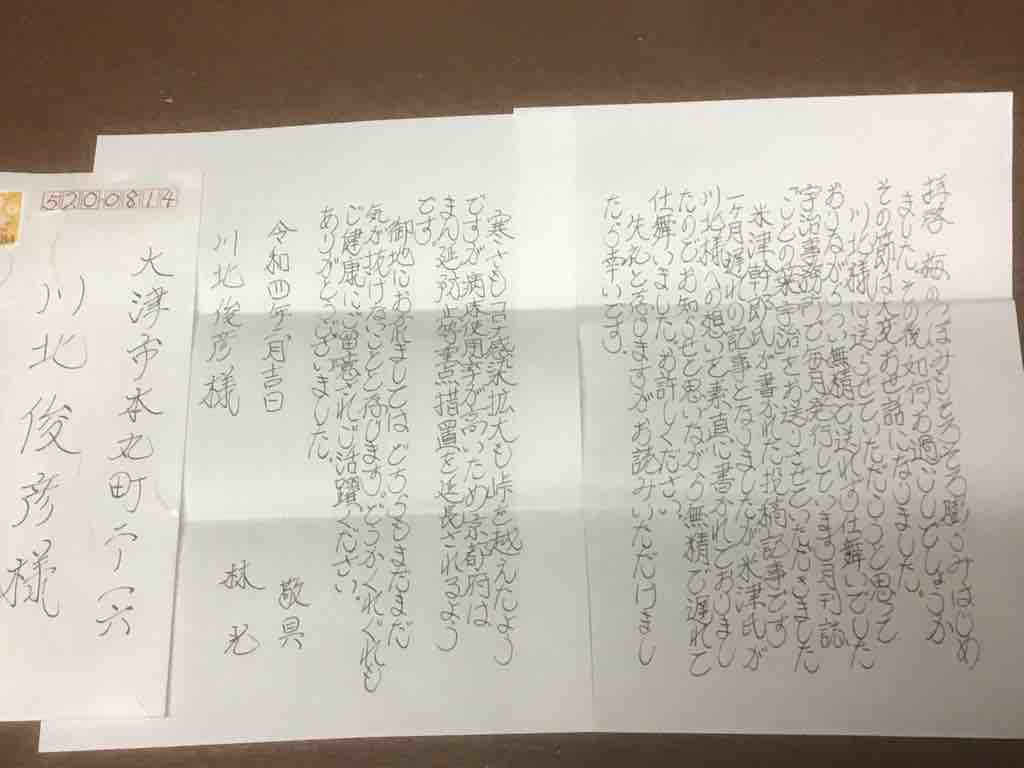 拝啓 梅のつぼみもそろそろ膨らみはじめ
ました。その後如何お過ごしでしょうか
その節は大変お世話になりました。
川北様に送らせていただこうと思って
おりながらつい無精で送れず仕舞いでした
宇治事務所で毎月発行しています月刊誌
こころの 童話をお送りさせていただきました
米津幹郎氏が書かれた投稿記事です
一ヶ月遅れの記事となりましたが、米津氏が
川北様への想いを素直に書かれておりまし
たのでお知らせと思いながら無精で遅れて
仕舞いましたお許しください。
失礼となりますがお読みいただけまし
たら幸いです。
寒さもコロナ感染拡大も峠を越えたよう
ですが病床使用率が高いため京都府は
まん延防止等重点措置を延長されるよう
です
御地におかれましてはどうもまだまだ
気が抜けないことと存じます。どうかくれぐれも
ご健康にご留意されご活躍ください。
ありがとうございました。
敬具
令和四年二月吉日
林
川北俊彦様
5200814
大津市本丸町
川北俊彦様